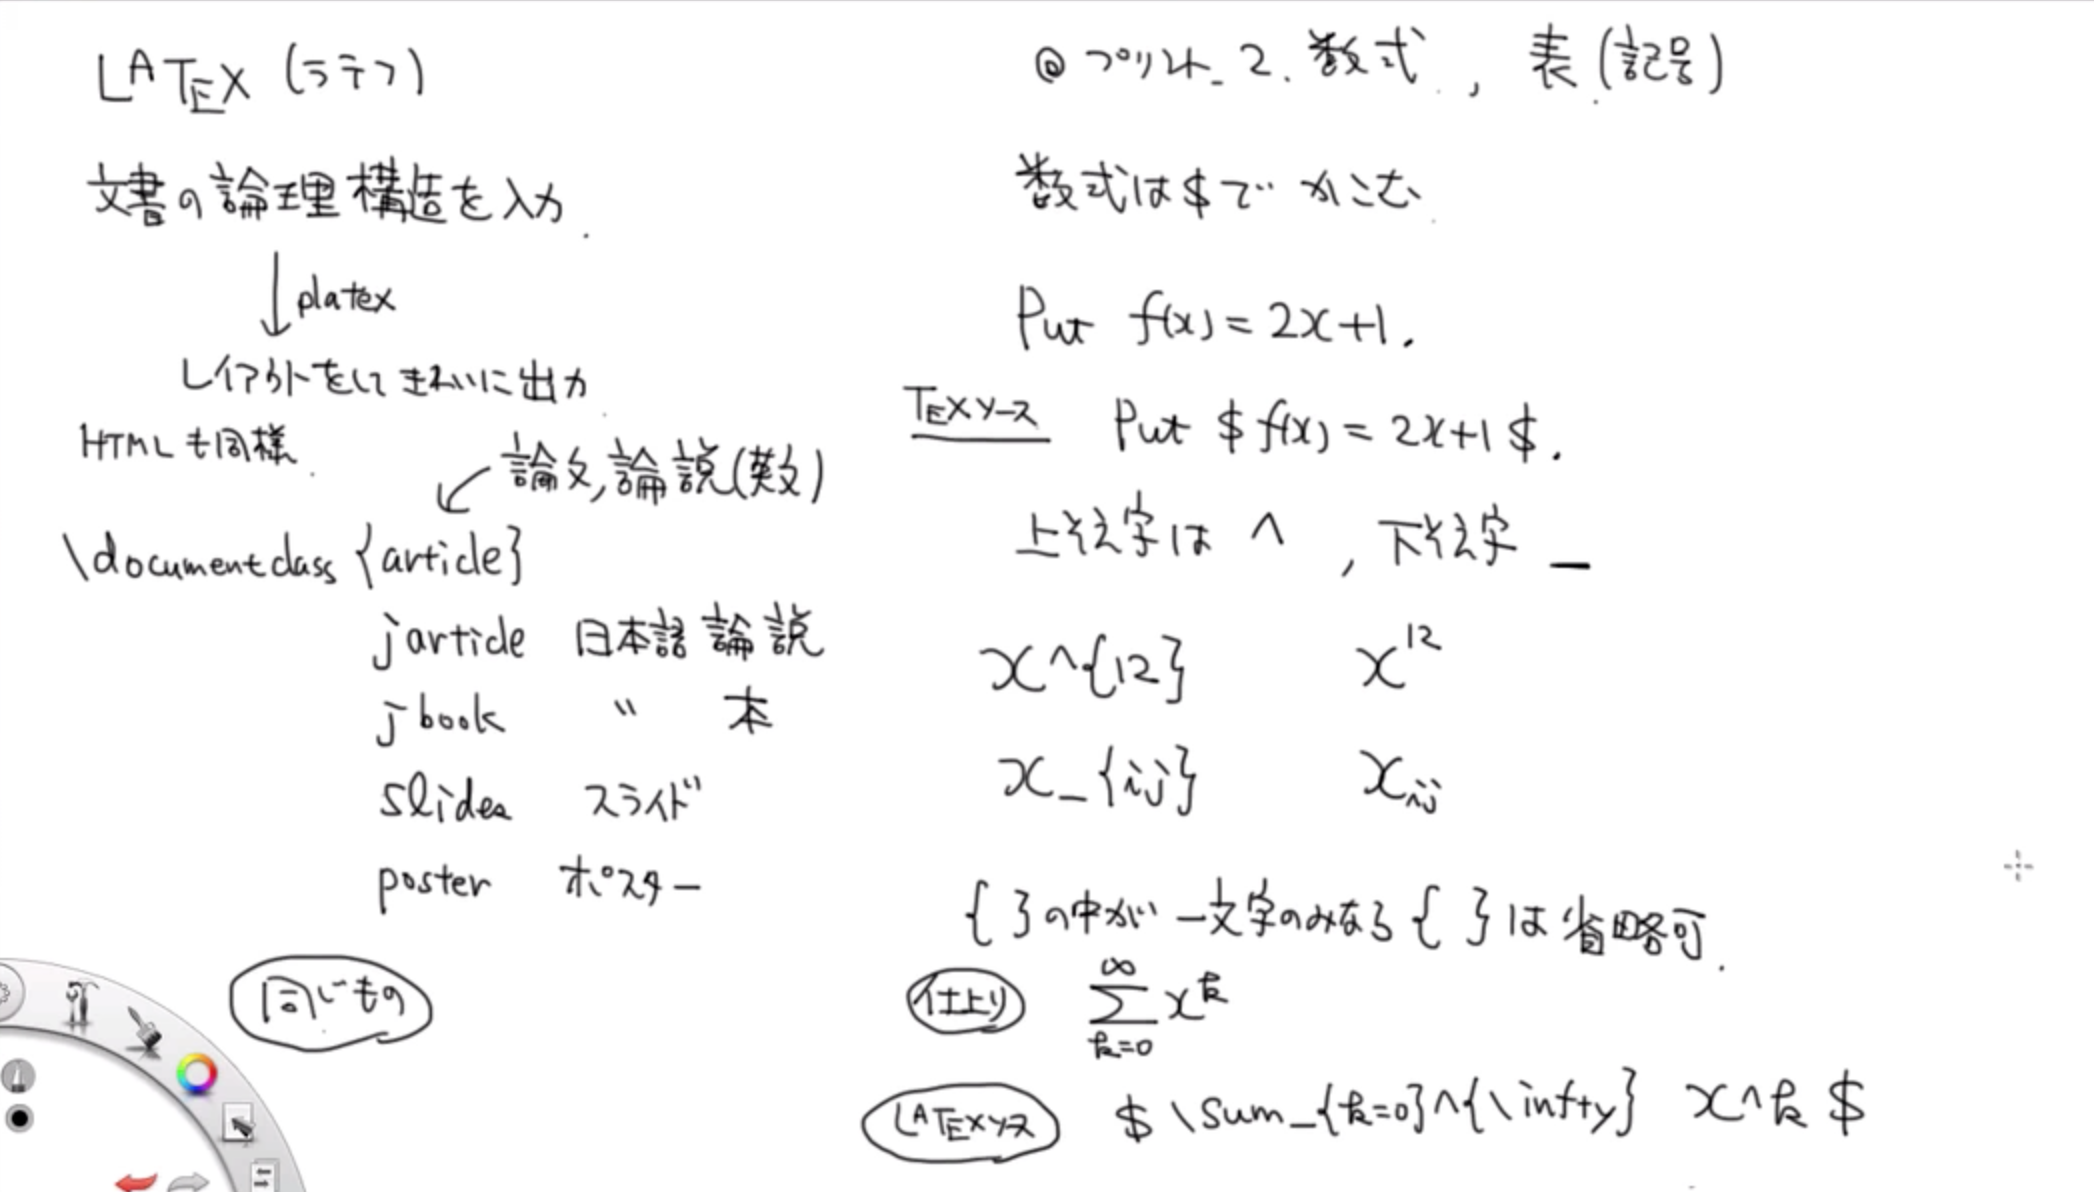 LATEX (ラテフ)
文書の論理構造を入力.
↓ platex
レイアウトをしてきれいに出力.
HTMLも同様.
論文,論説(英文)
\documentclass {article}
jarticle 日本語 論説
jbook 〃 本
slides スライド
poster ポスター
同じもの
◎ プリント_2. 数式, 表(記号)
数式は$でかこむ.
Put f(x) = 2x+1.
TEXソース Put $ f(x) = 2x+1 $.
上そえ字は ^ , 下そえ字 _
x^{12} x¹²
x_{ij} xij
{ }の中が一文字のみなら{ }は省略可.
仕上り ∞ Σ k=0 x^k
LATEXソース $ \sum_{k=0}^{\infty} x^k $